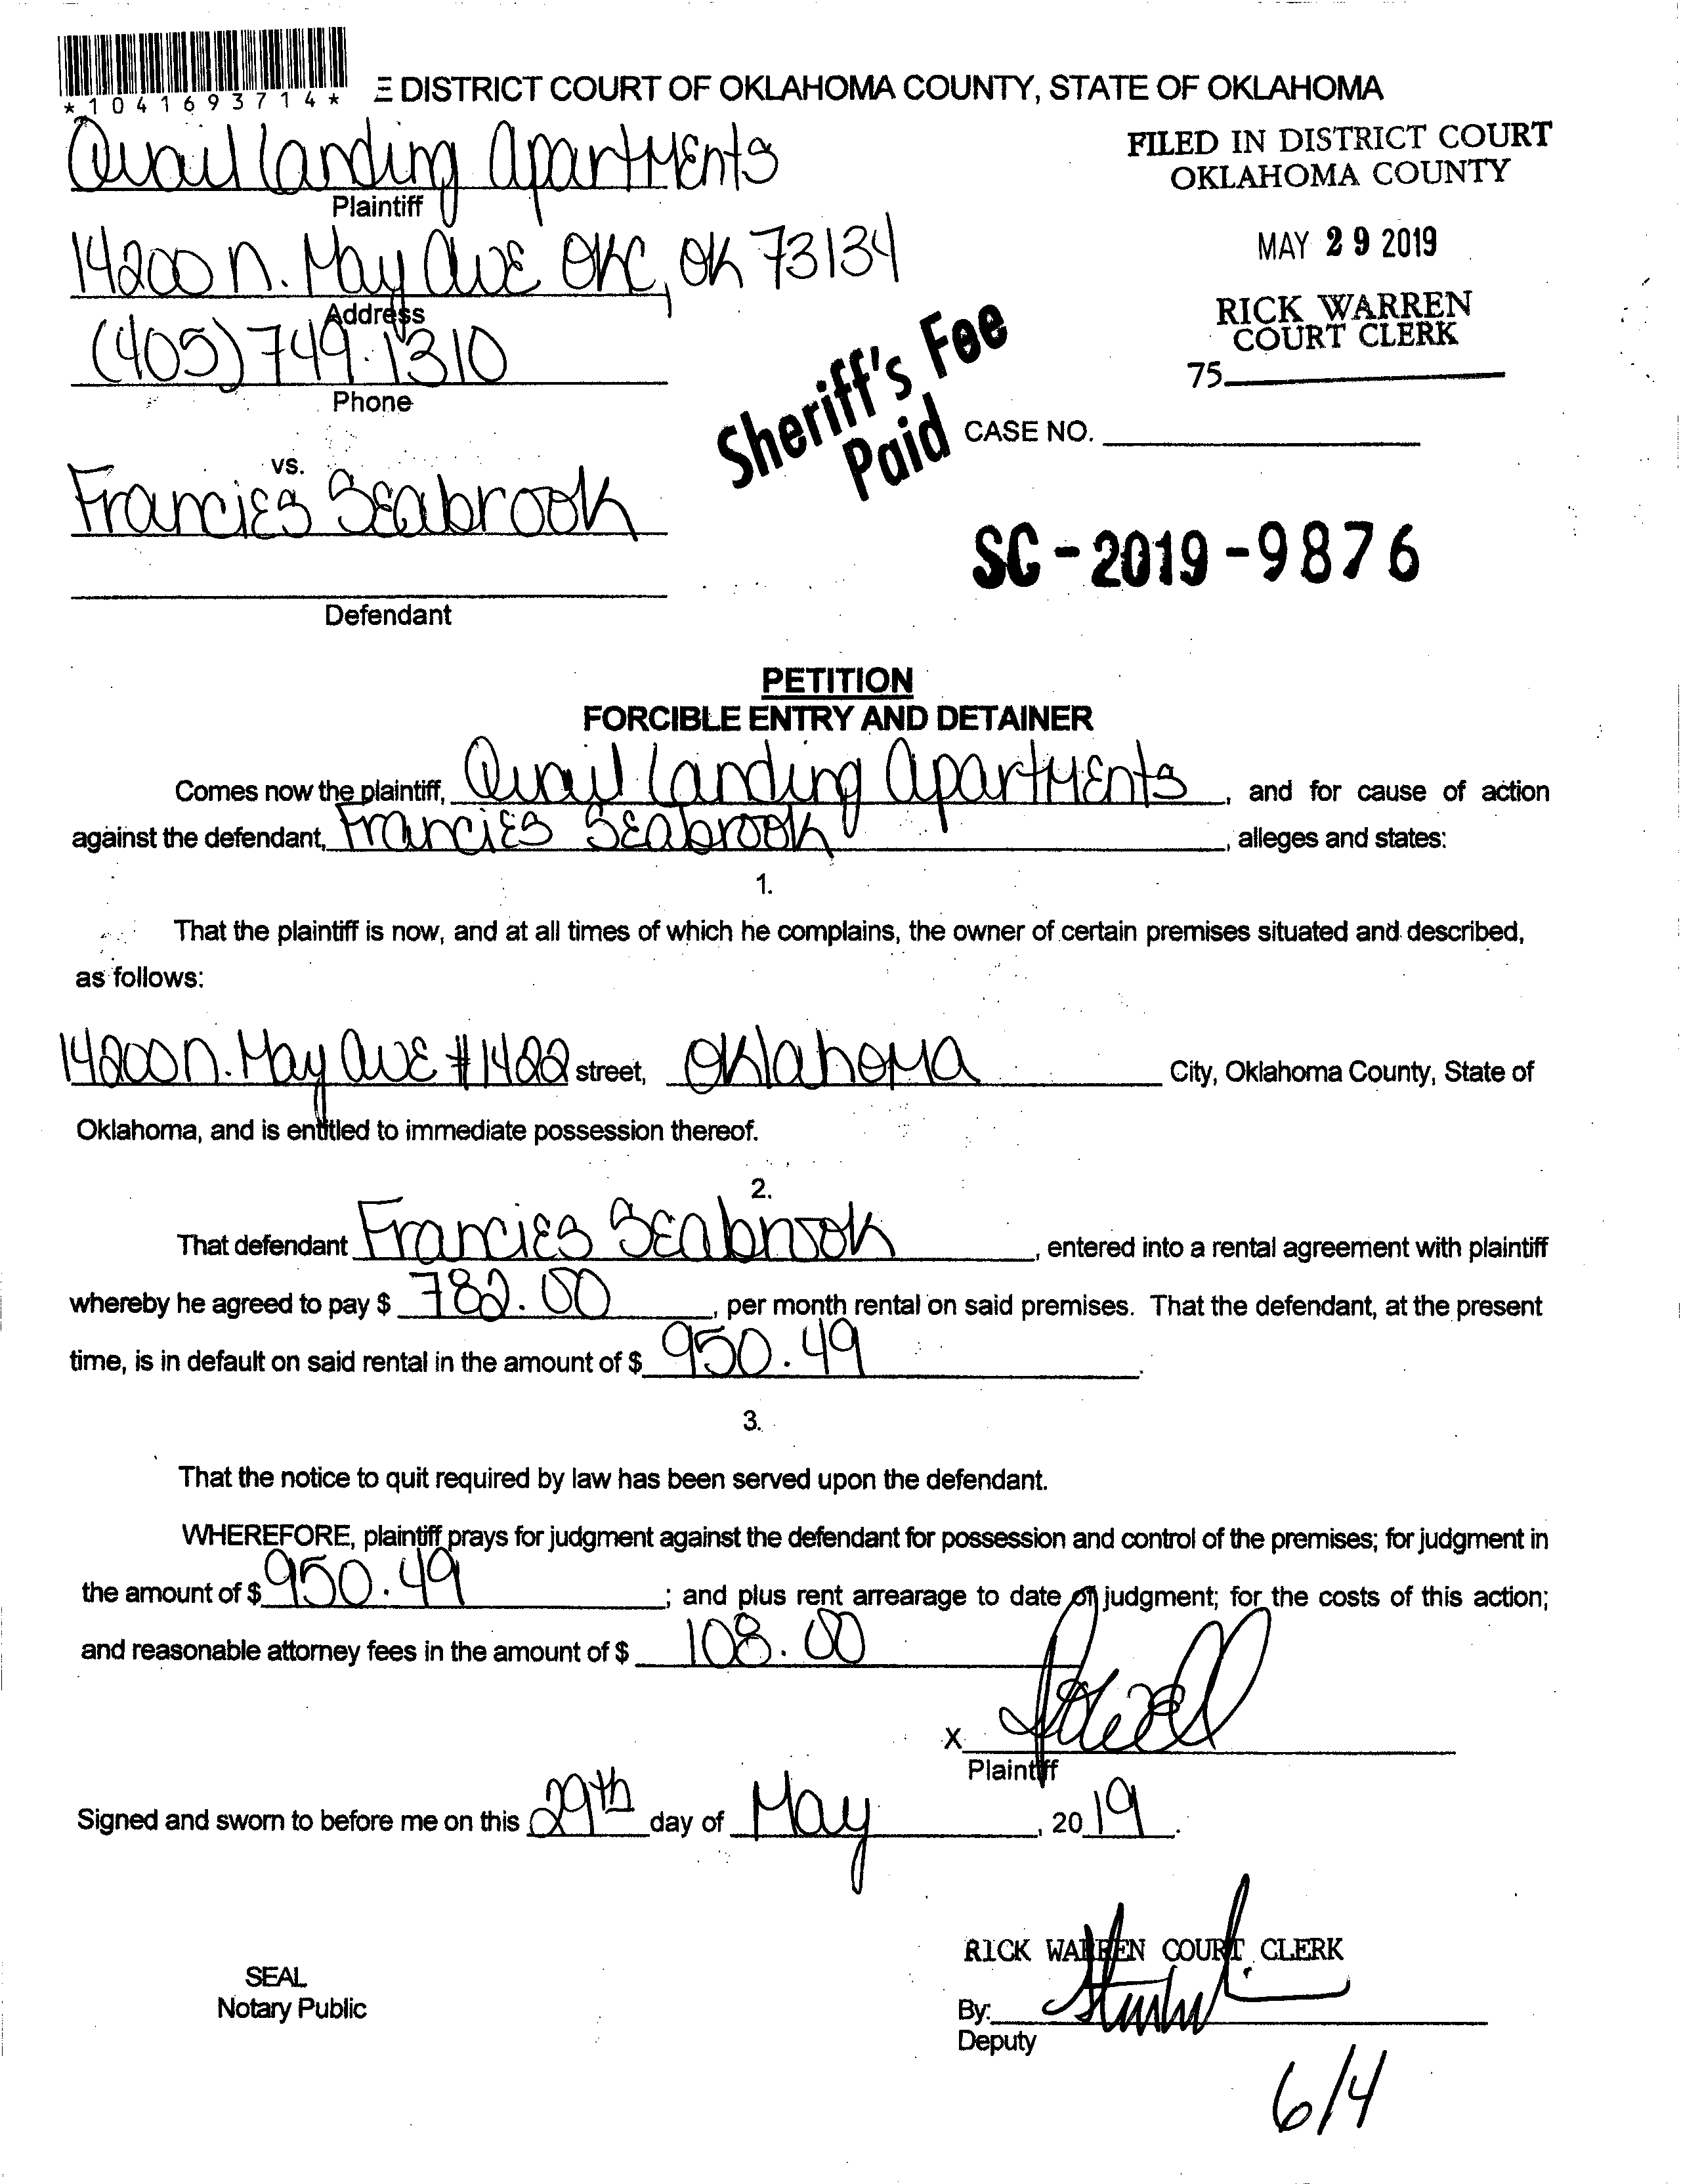 *1041693714*
E DISTRICT COURT OF OKLAHOMA COUNTY, STATE OF OKLAHOMA
Quail Landing Apartments
Plaintiff
FILED IN DISTRICT COURT
OKLAHOMA COUNTY
14200 N. May Ave OKC, OK 73134
Address
MAY 29 2019
(405) 749.1310
Phone
RICK WARREN
COURT CLERK
75
Sheriff's Fee
Paid
CASE NO.
vs.
Francies Seabrook
SC-2019-9876
Defendant
PETITION
FORCIBLE ENTRY AND DETAINER
Comes now the plaintiff, Quail Landing Apartments, and for cause of action
against the defendant, Francies Seabrook, alleges and states:
1.
That the plaintiff is now, and at all times of which he complains, the owner of certain premises situated and described,
as follows:
14200 N. May Ave #1422 street, Oklahoma City, Oklahoma County, State of
Oklahoma, and is entitled to immediate possession thereof.
2.
That defendant Francies Seabrook, entered into a rental agreement with plaintiff
whereby he agreed to pay $ 782.00, per month rental on said premises. That the defendant, at the present
time, is in default on said rental in the amount of $ 950.49.
3.
That the notice to quit required by law has been served upon the defendant.
WHEREFORE, plaintiff prays for judgment against the defendant for possession and control of the premises; for judgment in
the amount of $ 950.49; and plus rent arrearage to date of judgment; for the costs of this action;
and reasonable attorney fees in the amount of $ 108.00
X
Plaintiff
Signed and sworn to before me on this 29th day of May, 2019.
RICK WARREN COURT CLERK
SEAL
Notary Public
By:
Deputy
6/4